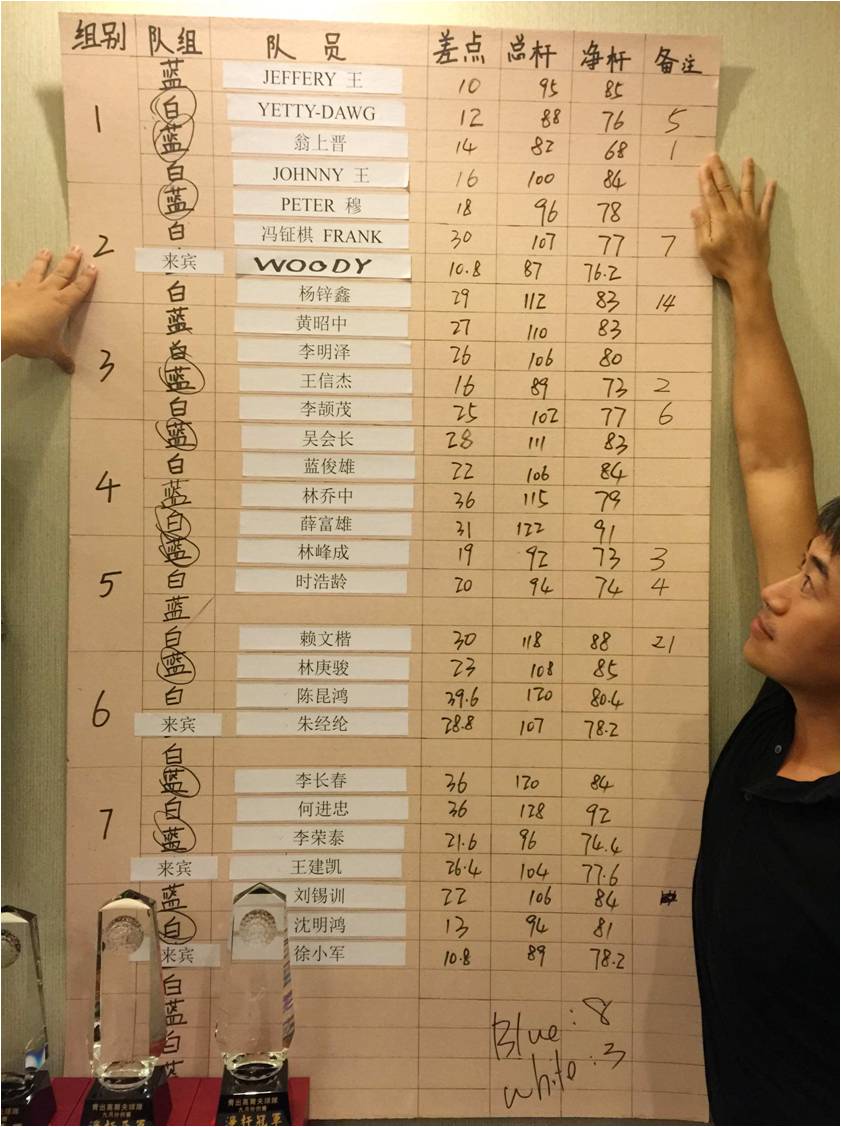 组别 队组 队员 差点 总杆 净杆 备注
1 蓝 JEFFERY 王 10 95 85
白 YETTY-DAWG 12 88 76 5
蓝 翁上晋 14 82 68 1
白 JOHNNY 王 16 100 84
2 蓝 PETER 穆 18 96 78
白 冯钲棋 FRANK 30 107 77 7
来宾 WOODY 10.8 87 76.2
白 杨锌鑫 29 112 83 14
3 蓝 黄昭中 27 110 83
白 李明泽 26 106 80
蓝 王信杰 16 89 73 2
白 李颉茂 25 102 77 6
4 蓝 吴会长 28 111 83
白 蓝俊雄 22 106 84
蓝 林乔中 36 115 79
白 薛富雄 31 122 91
5 蓝 林峰成 19 92 73 3
白 时浩龄 20 94 74 4
蓝
白 赖文楷 30 118 88 21
6 蓝 林庚骏 23 108 85
白 陈昆鸿 39.6 120 80.4
来宾 朱经纶 28.8 107 78.2
白
7 蓝 李长春 36 120 84
白 何进忠 36 128 92
蓝 李荣泰 21.6 96 74.4
来宾 王建凯 26.4 104 77.6
蓝 刘锡训 22 106 84
白 沈明鸿 13 94 81
来宾 徐小军 10.8 89 78.2
白
蓝
白
蓝
Blue: 8
white: 3
青出高爾夫球隊
九月份例賽
淨杆亞軍
青出高爾夫球隊
九月份例賽
淨杆冠軍